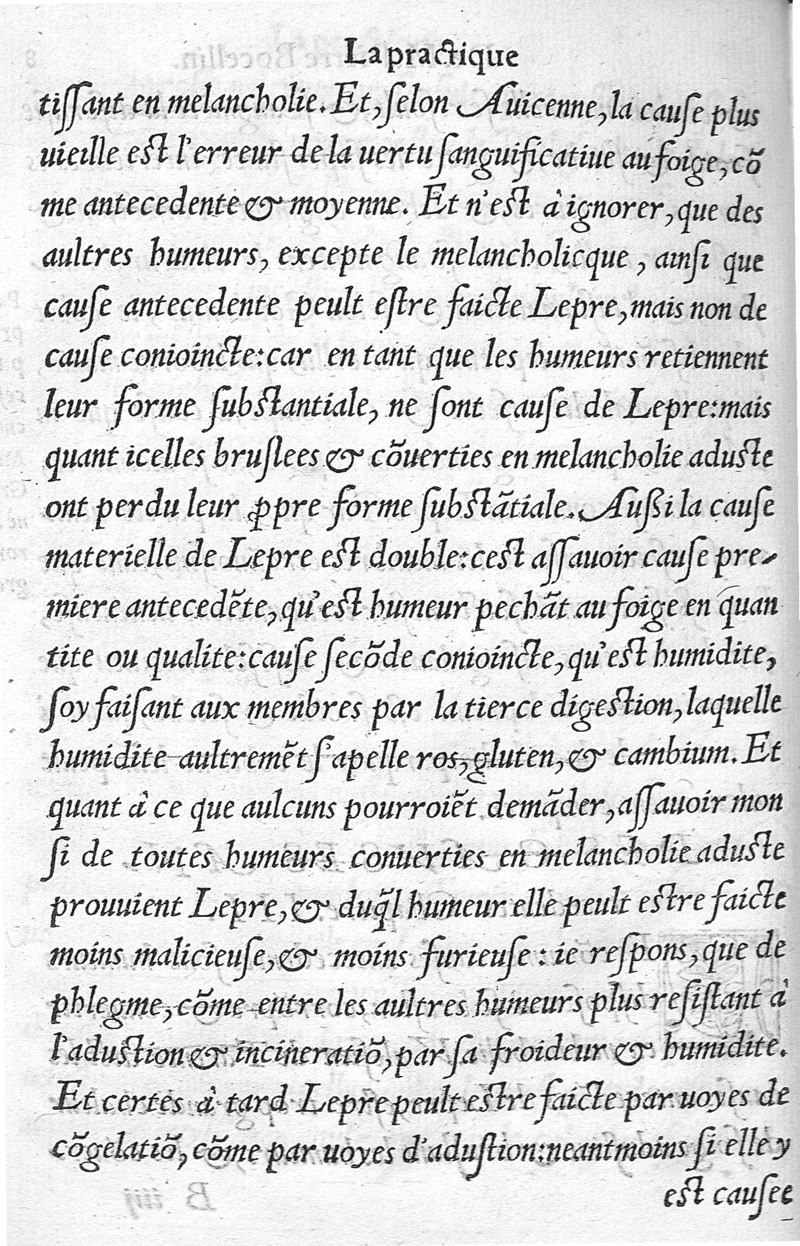 La practique
tiſſant en melancholie. Et, ſelon Auicenne, la cauſe plus
uieille eſt l'erreur de la uertu ſanguificatiue au foige, cõ
me antecedente & moyenne. Et n'eſt à ignorer, que des
aultres humeurs, excepte le melancholicque, ainſi que
cauſe antecedente peult eſtre faicte Lepre, mais non de
cauſe conioincte: car en tant que les humeurs retiennent
leur forme ſubſtantiale, ne ſont cauſe de Lepre: mais
quant icelles bruſlees & cõuerties en melancholie aduſte
ont perdu leur ꝓpre forme ſubſtãtiale. Außi la cauſe
materielle de Lepre eſt double: ceſt aſſauoir cauſe pre-
miere antecedẽte, qu'eſt humeur pechãt au foige en quan
tite ou qualite: cauſe ſecõde conioincte, qu'eſt humidite,
ſoy faiſant aux membres par la tierce digeſtion, laquelle
humidite aultremẽt ſ'apelle ros, gluten, & cambium. Et
quant à ce que aulcuns pourroiẽt demãder, aſſauoir mon
ſi de toutes humeurs conuerties en melancholie aduſte
prouuient Lepre, & duq̃l humeur elle peult eſtre faicte
moins malicieuſe, & moins furieuſe: ie reſpons, que de
phlegme, cõme entre les aultres humeurs plus reſiſtant à
l'aduſtion & incineratiõ, par ſa froideur & humidite.
Et certes à tard Lepre peult eſtre faicte par uoyes de
cõgelatiõ, cõme par uoyes d'aduſtion: neantmoins ſi elle y
eſt cauſee